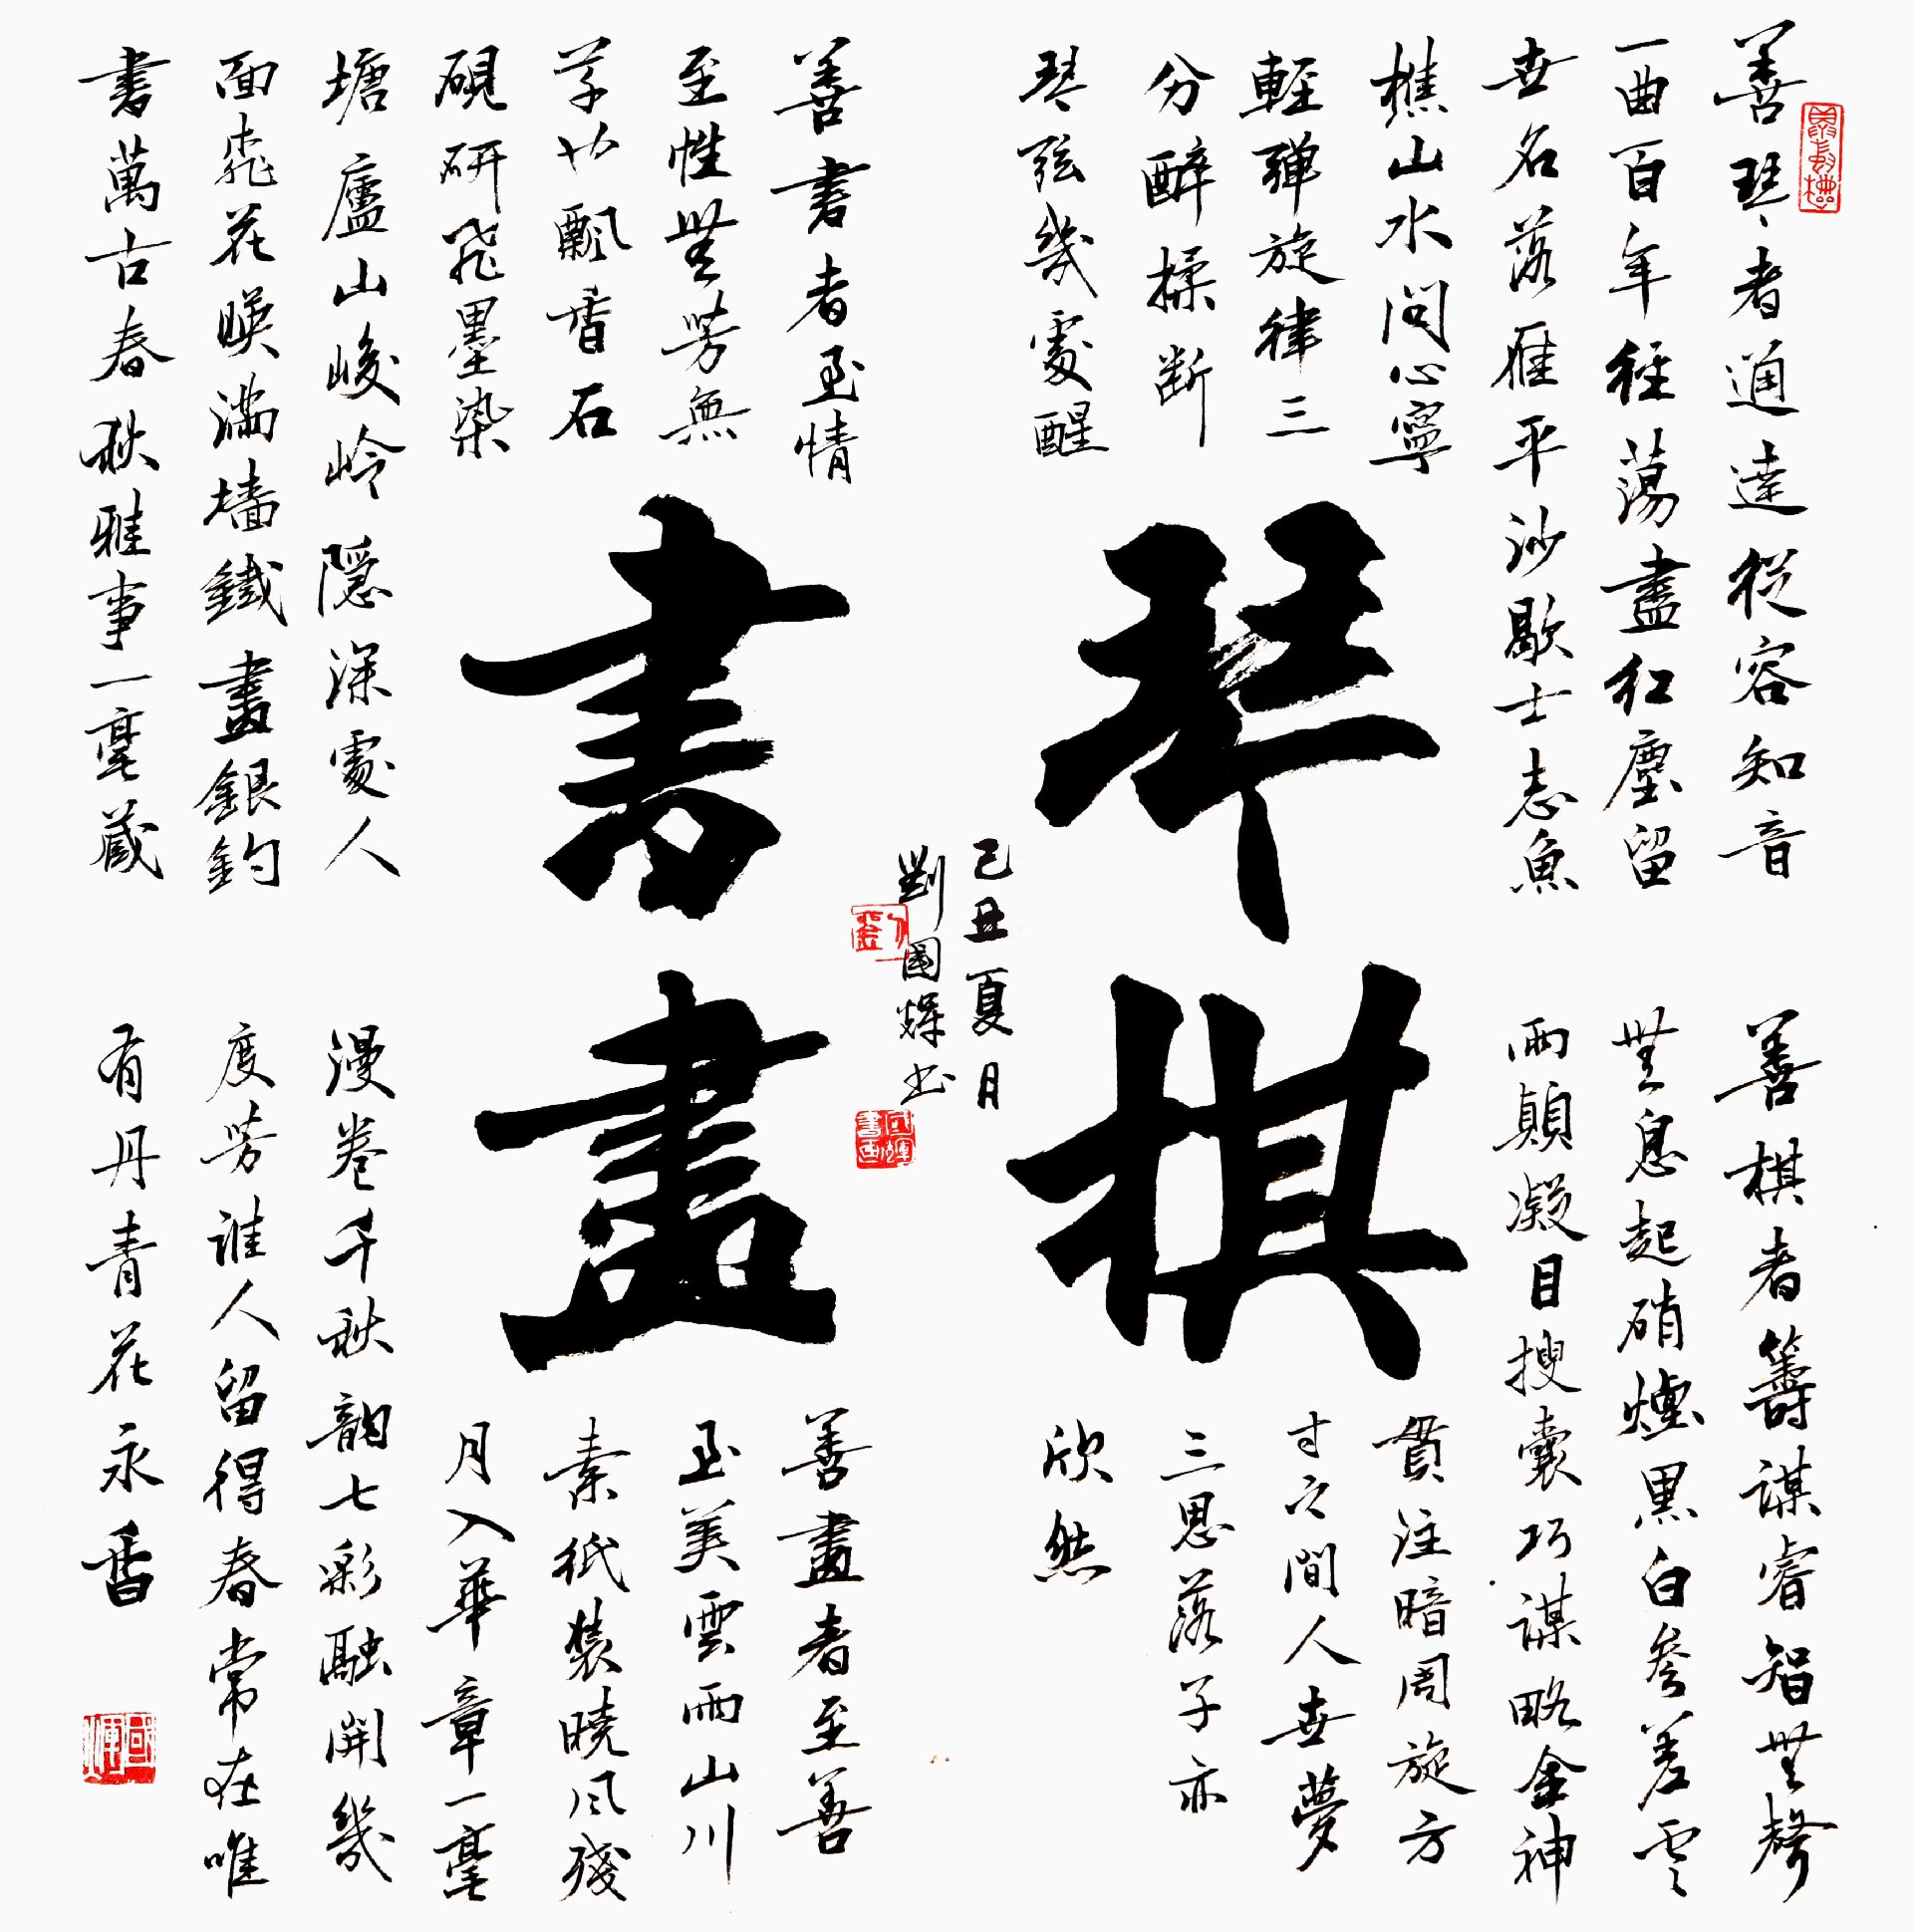 琴
善琴者通達從容知音
一曲百年經蕩盡紅塵留
世名落雁平沙歇士志魚
樵山水問心寧
輕彈旋律三
分醉揉斷
琴弦幾處醒
棋
善棋者籌謀睿智無聲
無息起硝煙黑白參差雲
雨顛凝目搜囊巧謀略全神
貫注暗周旋方
寸之間人世夢
三思落子亦
欣然
書
善書者至情
至性無芳無
草也飄香石
硯研飛墨染
塘廬山峻岭隱深處人
面飛花映滿墻鐵畫銀鈎
書萬古春秋雅事一毫藏
畫
善畫者至善
至美雲雨山川
素紙裝曉風殘
月入華章一毫
漫卷千秋韻七彩融開幾
度芳誰人留得春常在唯
有丹青花永香
己丑夏月
劉國輝书
劉
國輝書畫
國輝